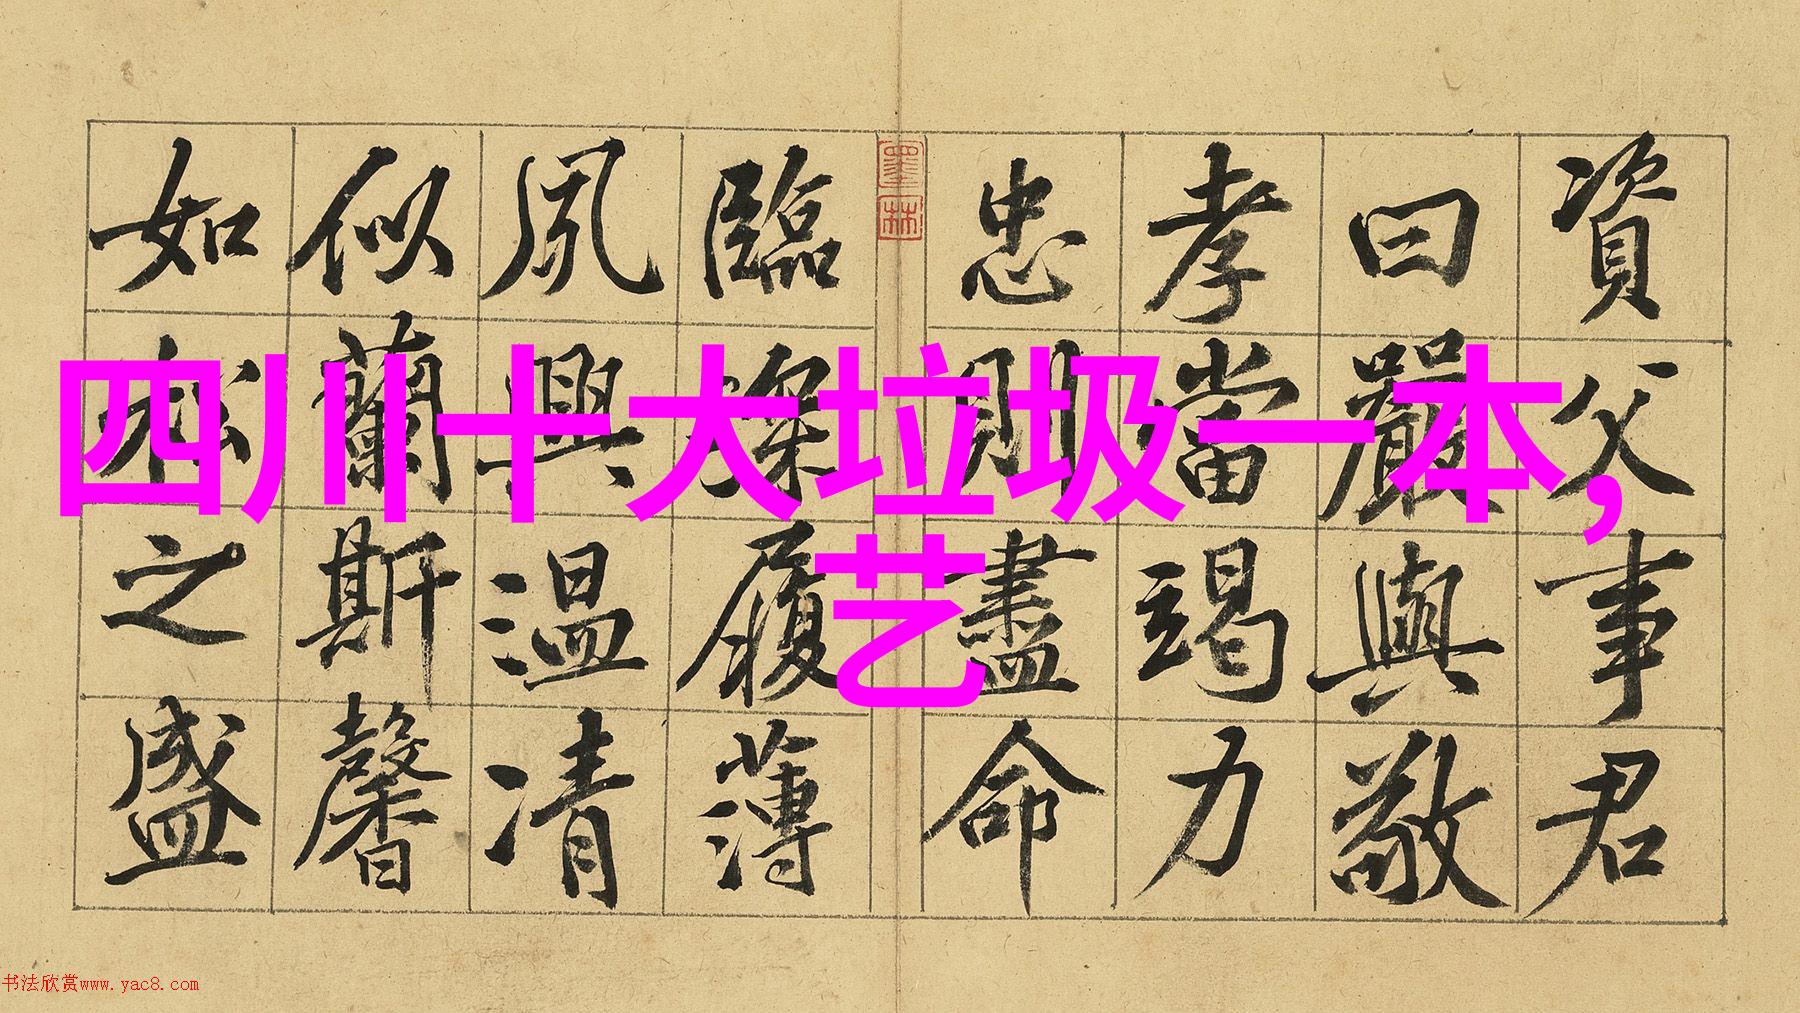 四川十大垃圾一本,
艺
資父事君
曰嚴與敬
孝當竭力
忠則盡命
臨深履薄
夙興温凊
似蘭斯馨
如松之盛
墨林
书法欣赏www.yac8.com